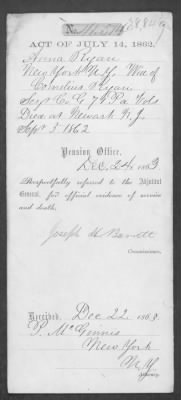 No.
ACT OF JULY 14, 1862.
Anna Ryan
New York N.Y. Wid of
Cornelius Ryan
Co. G 79 Pa Vols
Died at Newark N.J.
Sept 3 1862
Pension Office,
Dec. 24 1863
Respectfully referred to the Adjutant
General, for official evidence of service
and death.
Joseph H Barrett
Commissioner.
Received, Dec 22 1863.
P. McGinnis
New York
N.Y.
Attorney.